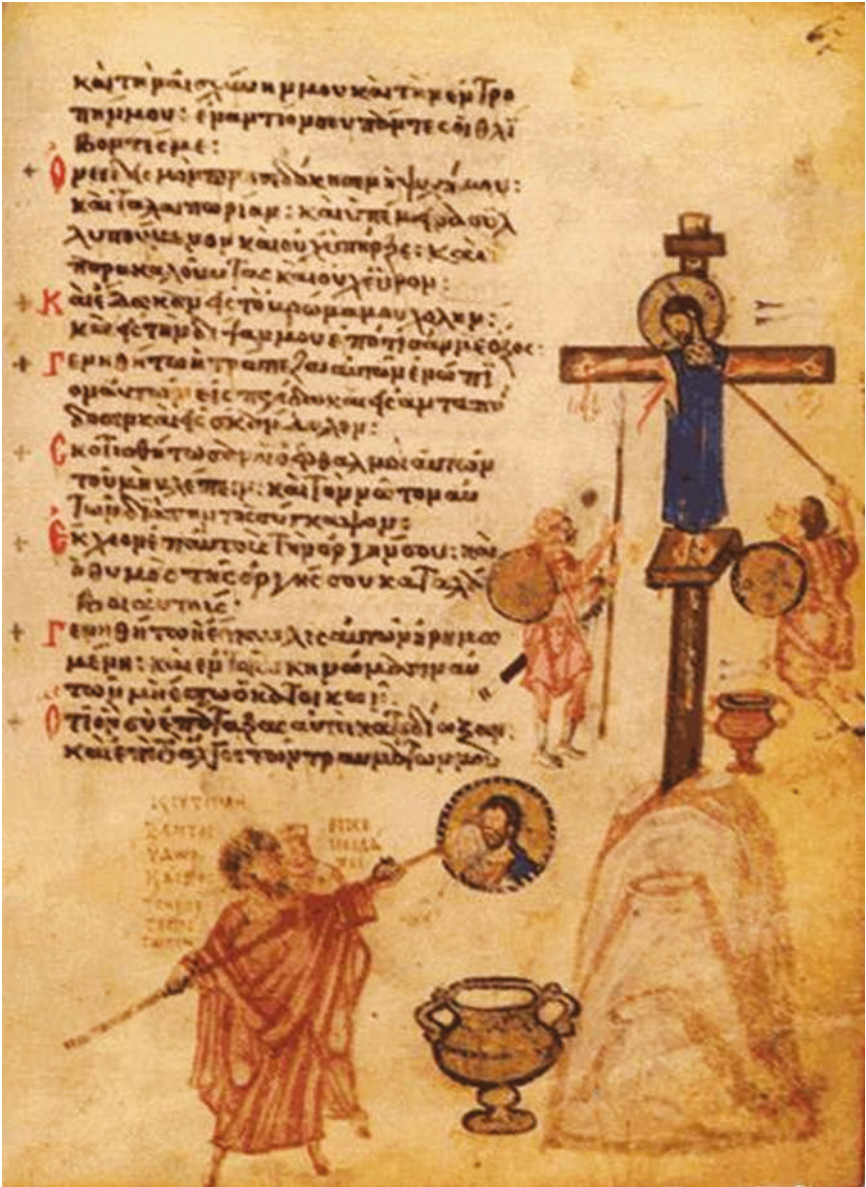 καὶ τὴν αἰσχύνην μου καὶ τὴν ἐντρο
πήν μου: ἐναντίον σου πάντες οἱ θλί
βοντές με:
Ὀνειδισμὸν προσεδόκησεν ἡ ψυχή μου:
καὶ ταλαιπωρίαν: καὶ ὑπέμεινα συλ
λυπούμενον καὶ οὐχ ὑπῆρξε: καὶ
παρακαλοῦντας καὶ οὐχ εὗρον:
Καὶ ἔδωκαν εἰς τὸ βρῶμά μου χολήν:
καὶ εἰς τὴν δίψαν μου ἐπότισάν με ὄξος:
Γενηθήτω ἡ τράπεζα αὐτῶν ἐνώπι
ον αὐτῶν εἰς παγίδα καὶ εἰς ἀνταπό
δοσιν καὶ εἰς σκάνδαλον:
Σκοτισθήτωσαν οἱ ὀφθαλμοὶ αὐτῶν
τοῦ μὴ βλέπειν: καὶ τὸν νῶτον αὐ
τῶν διὰ παντὸς σύγκαμψον:
Ἔκχεον ἐπ' αὐτοὺς τὴν ὀργήν σου: καὶ
ὁ θυμὸς τῆς ὀργῆς σου καταλά
βοι αὐτούς:
Γενηθήτω ἡ ἔπαυλις αὐτῶν ἠρημω
μένη: καὶ ἐν τοῖς σκηνώμασιν αὐ
τῶν μὴ ἔστω ὁ κατοικῶν:
Ὅτι ὃν σὺ ἐπάταξας αὐτοὶ κατεδίωξαν:
καὶ ἐπὶ τὸ ἄλγος τῶν τραυμάτων μου